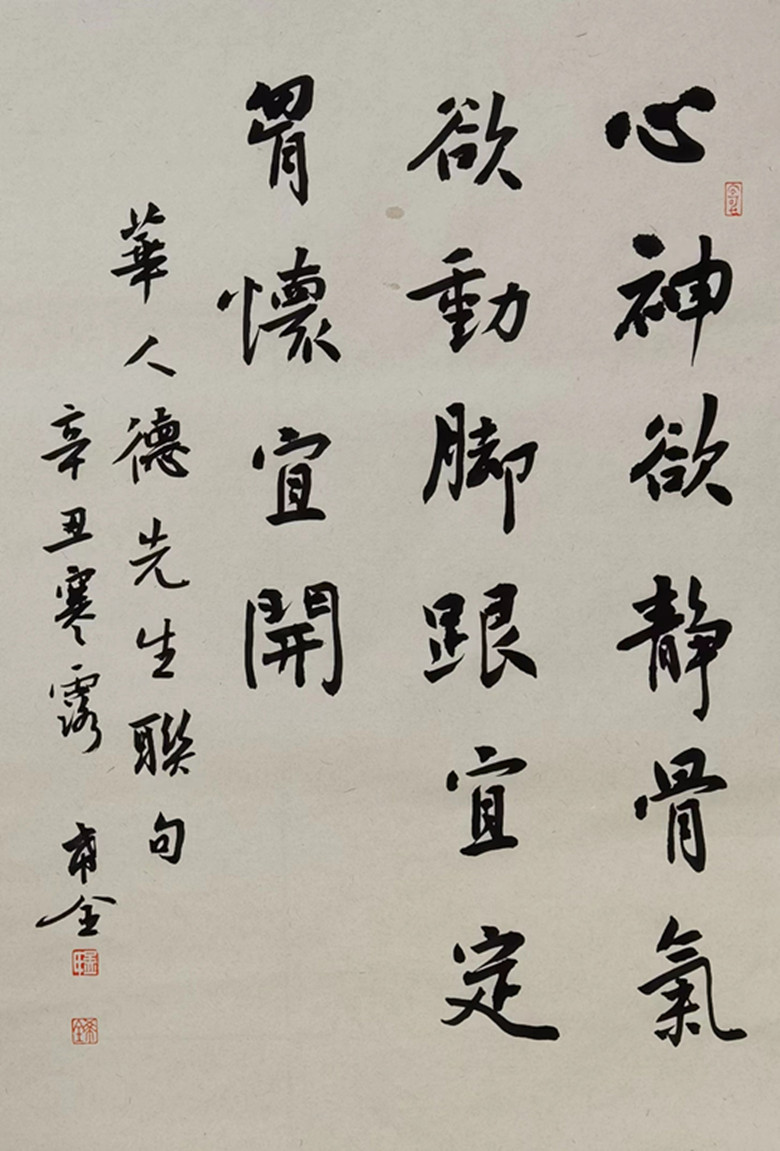 心神欲静骨氣
欲動脚跟宜定
胷懷宜開
華人德先生聯句
辛丑寒露